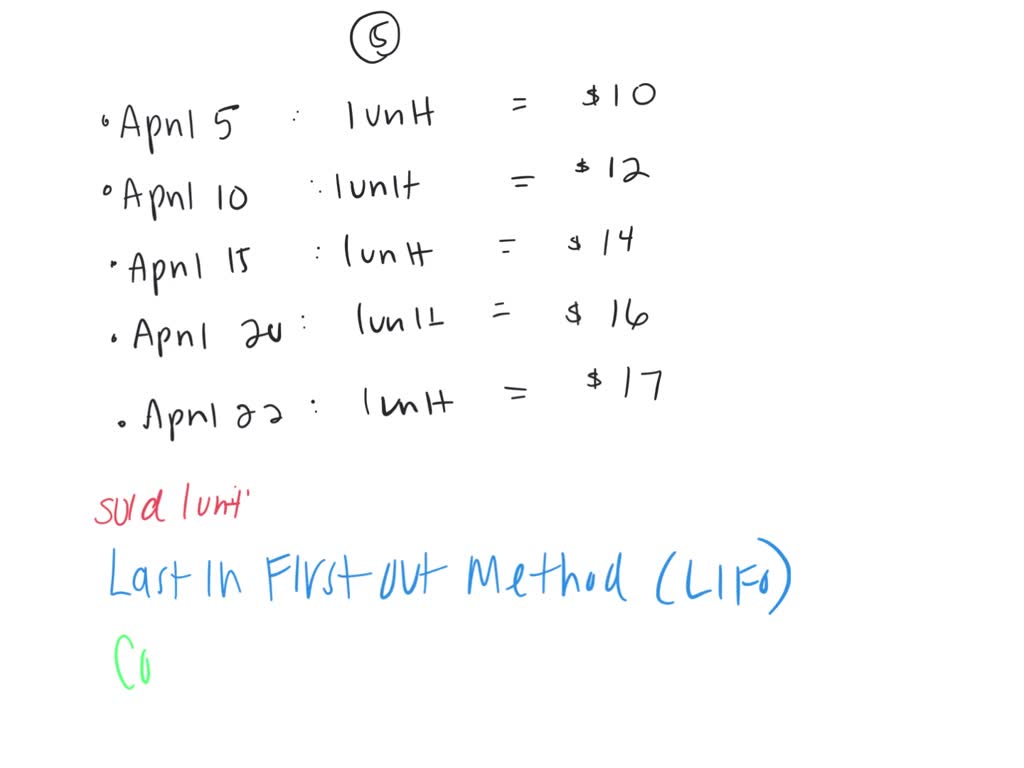 5
• April 5 : 1 unit = $10
• April 10 : 1 unit = $12
• April 15 : 1 unit = $14
• April 20 : 1 unit = $16
• April 22 : 1 unit = $17
sold 1 unit
Last in First out Method (LIFO)
Co